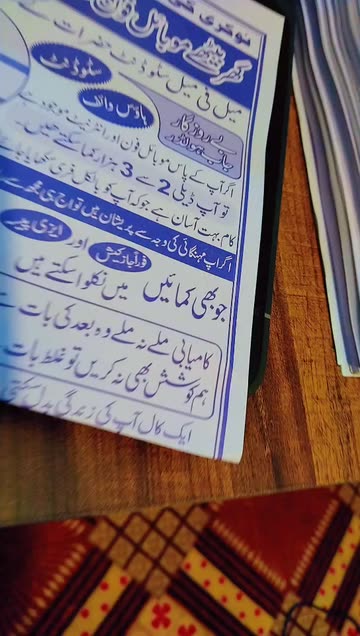 نوکری کی
گھر بیٹھے موبائل فون
میل فی میل سٹوڈنٹ حضرات کے
سٹوڈنٹ
ہاؤس وائف
بے روزگار
اگر آپ کے پاس موبائل فون اور انٹرنیٹ موجود ہے
تو آپ ڈیلی 2 سے 3 ہزار کما سکتے ہیں۔
کام بہت آسان ہے جو کہ آپ کو بالکل فری سکھایا جائے
اگر آپ مہنگائی کی وجہ سے پریشان ہیں تو آج ہی مجھ سے
جو بھی کمائیں
فوراً جاز کیش
اور
ایزی پیسہ
میں نکلوا سکتے ہیں
کامیابی ملے نہ ملے وہ بعد کی بات ہے
ہم کوشش بھی نہ کریں تو غلط بات
ایک کال آپ کی زندگی بدل سکتی